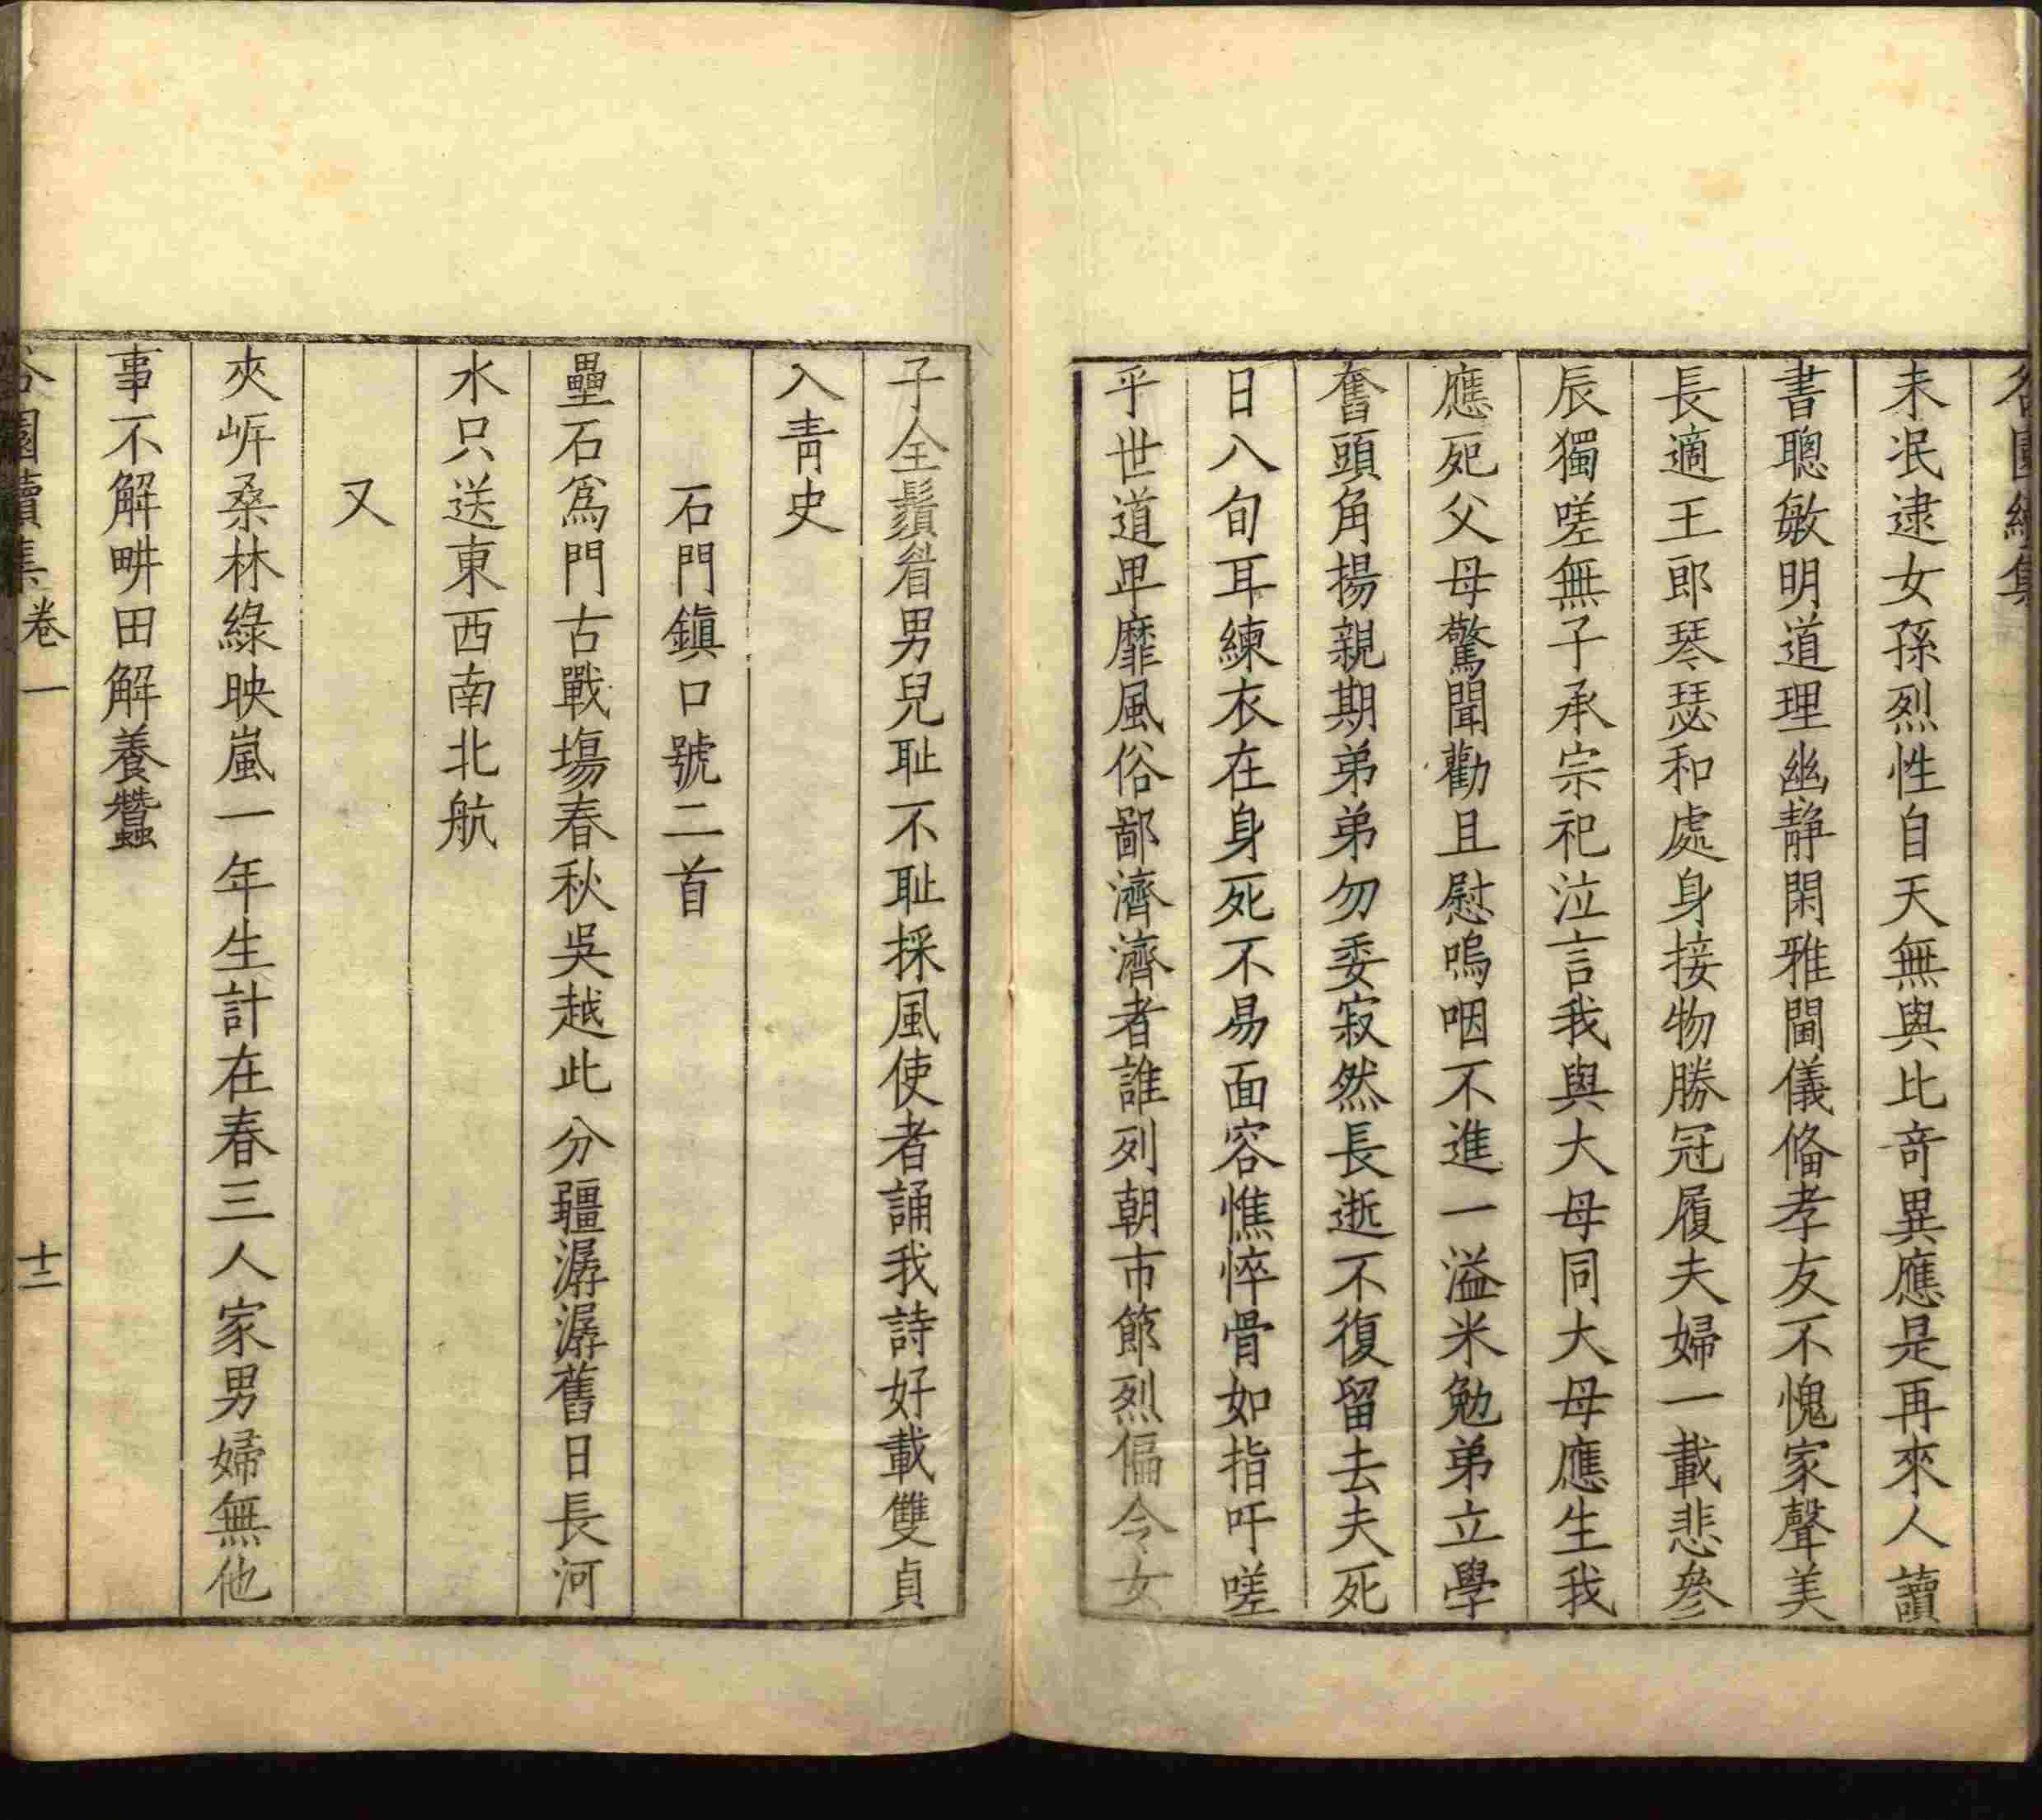 谷園續集
未泯逮女孫烈性自天無與比奇異應是再來人讀
書聰敏明道理幽靜閑雅閫儀俻孝友不愧家聲美
長適王郎琴瑟和處身接物勝冠履夫婦一載悲參
辰獨嗟無子承宗祀泣言我與大母同大母應生我
應死父母驚聞勸且慰嗚咽不進一溢米勉弟立學
奮頭角揚親期弟弟勿委寂然長逝不復留去夫死
日八旬耳練衣在身死不易面容憔悴骨如指吁嗟
乎世道卑靡風俗鄙濟濟者誰列朝市節烈偏令女
子全鬚眉男兒耻不耻採風使者誦我詩好載雙貞
入青史
石門鎮口號二首
壘石爲門古戰塲春秋吳越此分疆潺潺舊日長河
水只送東西南北航
又
夾㟁桑林綠映嵐一年生計在春三人家男婦無他
事不解畊田解養蠶
谷園續集 卷一 十二